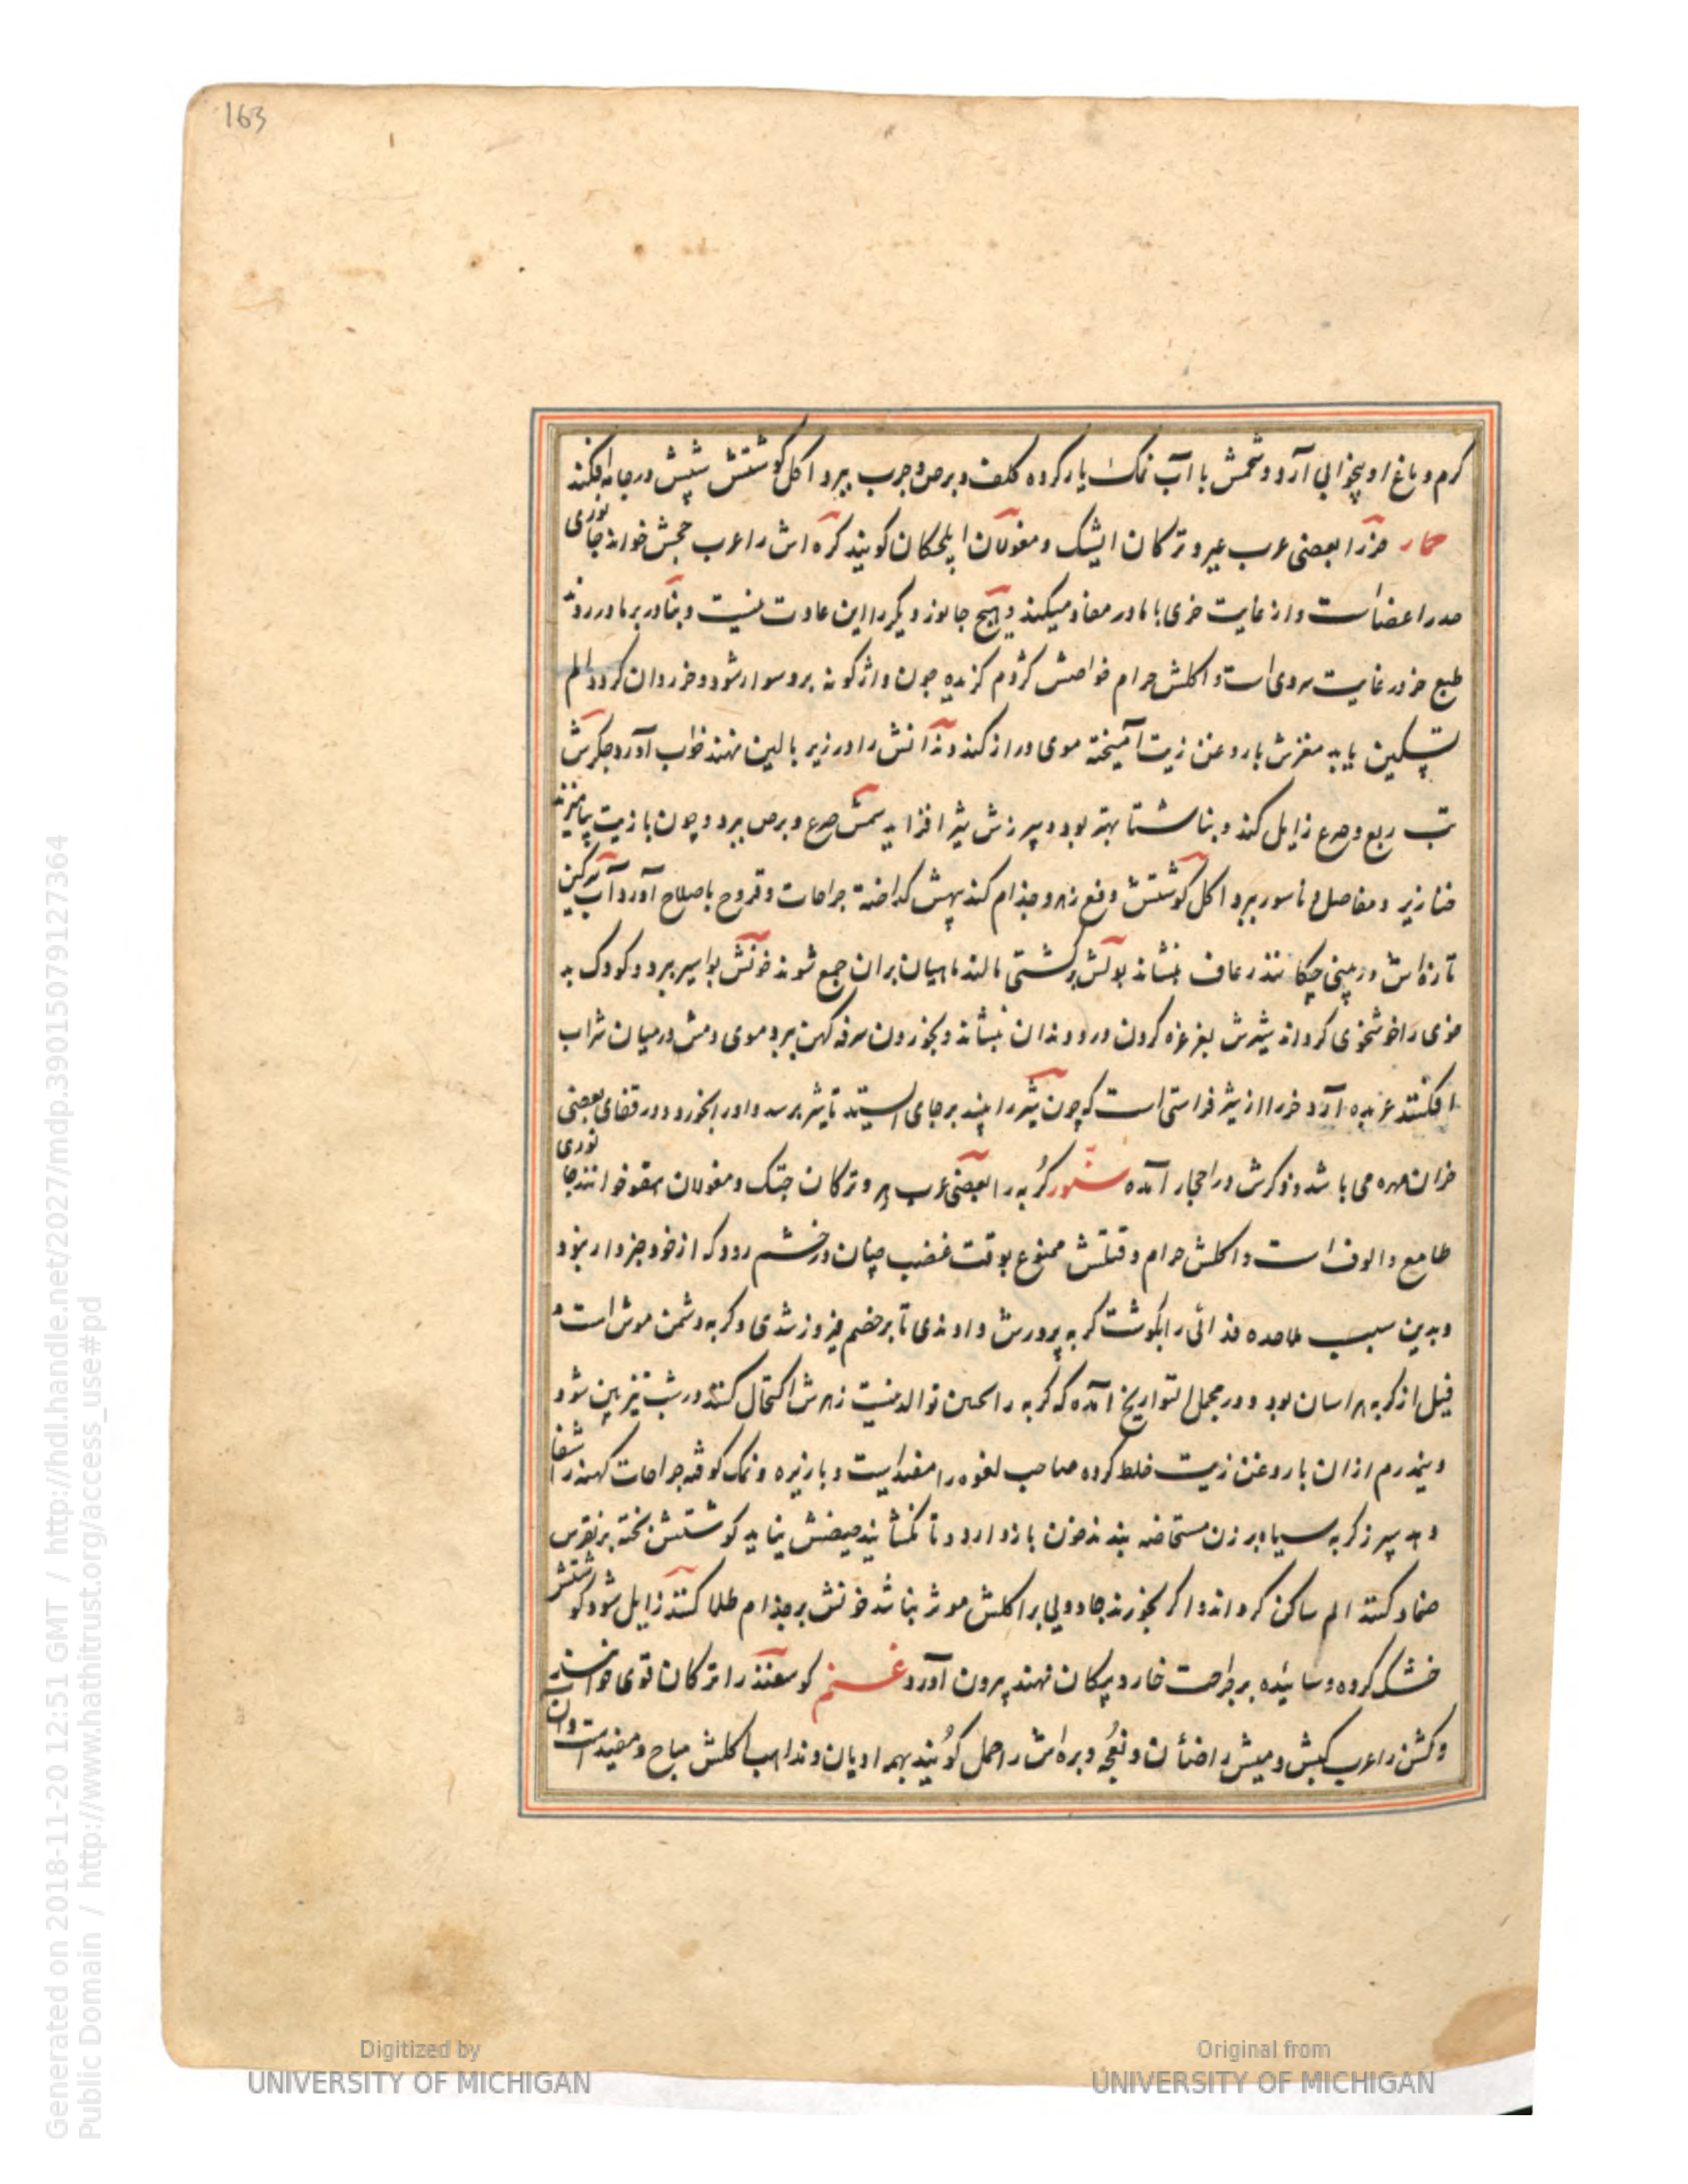 163
کرم و باغ او بیخوابی آرد و شحمش با آب نمک یار کرده کلف و برص و جرب ببرد اکل گوشتش شپش در جامه افکند
حمار خر را بعضی عرب عیر و ترکان ایشک و مغولان ایلجکان کویند کره اش را عرب جحش خوانند جانوری
صدر اعضاست و از غایت خری با مادر معاد میکند و هیچ جانور دیگر را این عادت نیست و بنادر بر مادر رود
طبع خر در غایت سردی است و اکلش حرام خواصش کژدم کزیده چون واژکونه برو سوار شود و خر روان کردد الم
تسکین یابد مغزش با روغن زیت آمیخته موی دراز کند دندانش را در زیر بالین نهند خواب آورد جکرش
تب ربع و صرع زایل کند و بناشتا بهتر بود و سپرزش شیر افزاید سمش صرع و برص ببرد و چون با زیت بیامیزند
خنازیر و مفاصل و ناسور ببرد اکل کوشتش دفع زهر و جذام کند پیهش کداخته جراحات و قروح باصلاح آورد آب سرکین
تازه اش در بینی چکانند رعاف بنشاند بولش بر کشتی مالند ماهیان بران جمع شوند خونش بواسیر ببرد و کودک بد
خوی را خوشخوی کرداند شیرش بغرغره کردن درد دندان بنشاند و بخوردن سرفه کهن ببرد موی دمش در میان شراب
افکنند عربده آرد خر را از شیر فراستی است که چون شیر را بیند بر جای ایستد تا شیر برسد و او را بخورد و در قفای بعضی
خران مهره می باشد و ذکرش در احجار آمده سنور کربه را بعضی عرب هر و ترکان جتک و مغولان مقو خوانند جانوری
طامع و الوف است و اکلش حرام و قتلش ممنوع بوقت غضب چنان در خشم رود که از خود خبردار نبود
و بدین سبب ملاحده فدائی را بکوشت کربه پرورش دادندی تا بر خصم فیروز شدی و کربه دشمن موش است و
فیل از کربه هراسان بود و در مجمل التواریخ آمده که کربه را لحین توالد نیست زهرش اکتحال کنند در شب تیز بین شود
و نیم درم ازان با روغن زیت خلط کرده صاحب لقوه را مفید است و با زیره و نمک کوفته جراحات کهنه را شفا
دهد سپرز کربه سیاه بر زن مستحاضه بندند خون بازدارد و تا نکشایند حیضش نیاید کوشتش پخته بر نقرس
ضماد کنند الم ساکن کرداند و اکر بخورند جادویی بر اکلش موثر نباشد خونش بر جذام طلا کنند زایل شود کوشتش
خشک کرده و سائیده بر جراحت خار و پیکان نهند بیرون آورد غنم کوسفند را ترکان قوی خوانند
و کشن را عرب کبش و میش را ضأن و نعجه و بره اش را حمل کویند بهمه ادیان و مذاهب اکلش مباح و مفید است و ان
Generated on 2018-11-20 12:51 GMT / http://hdl.handle.net/2027/mdp.39015079127364
Public Domain / http://www.hathitrust.org/access_use#pd
Digitized by
UNIVERSITY OF MICHIGAN
Original from
UNIVERSITY OF MICHIGAN